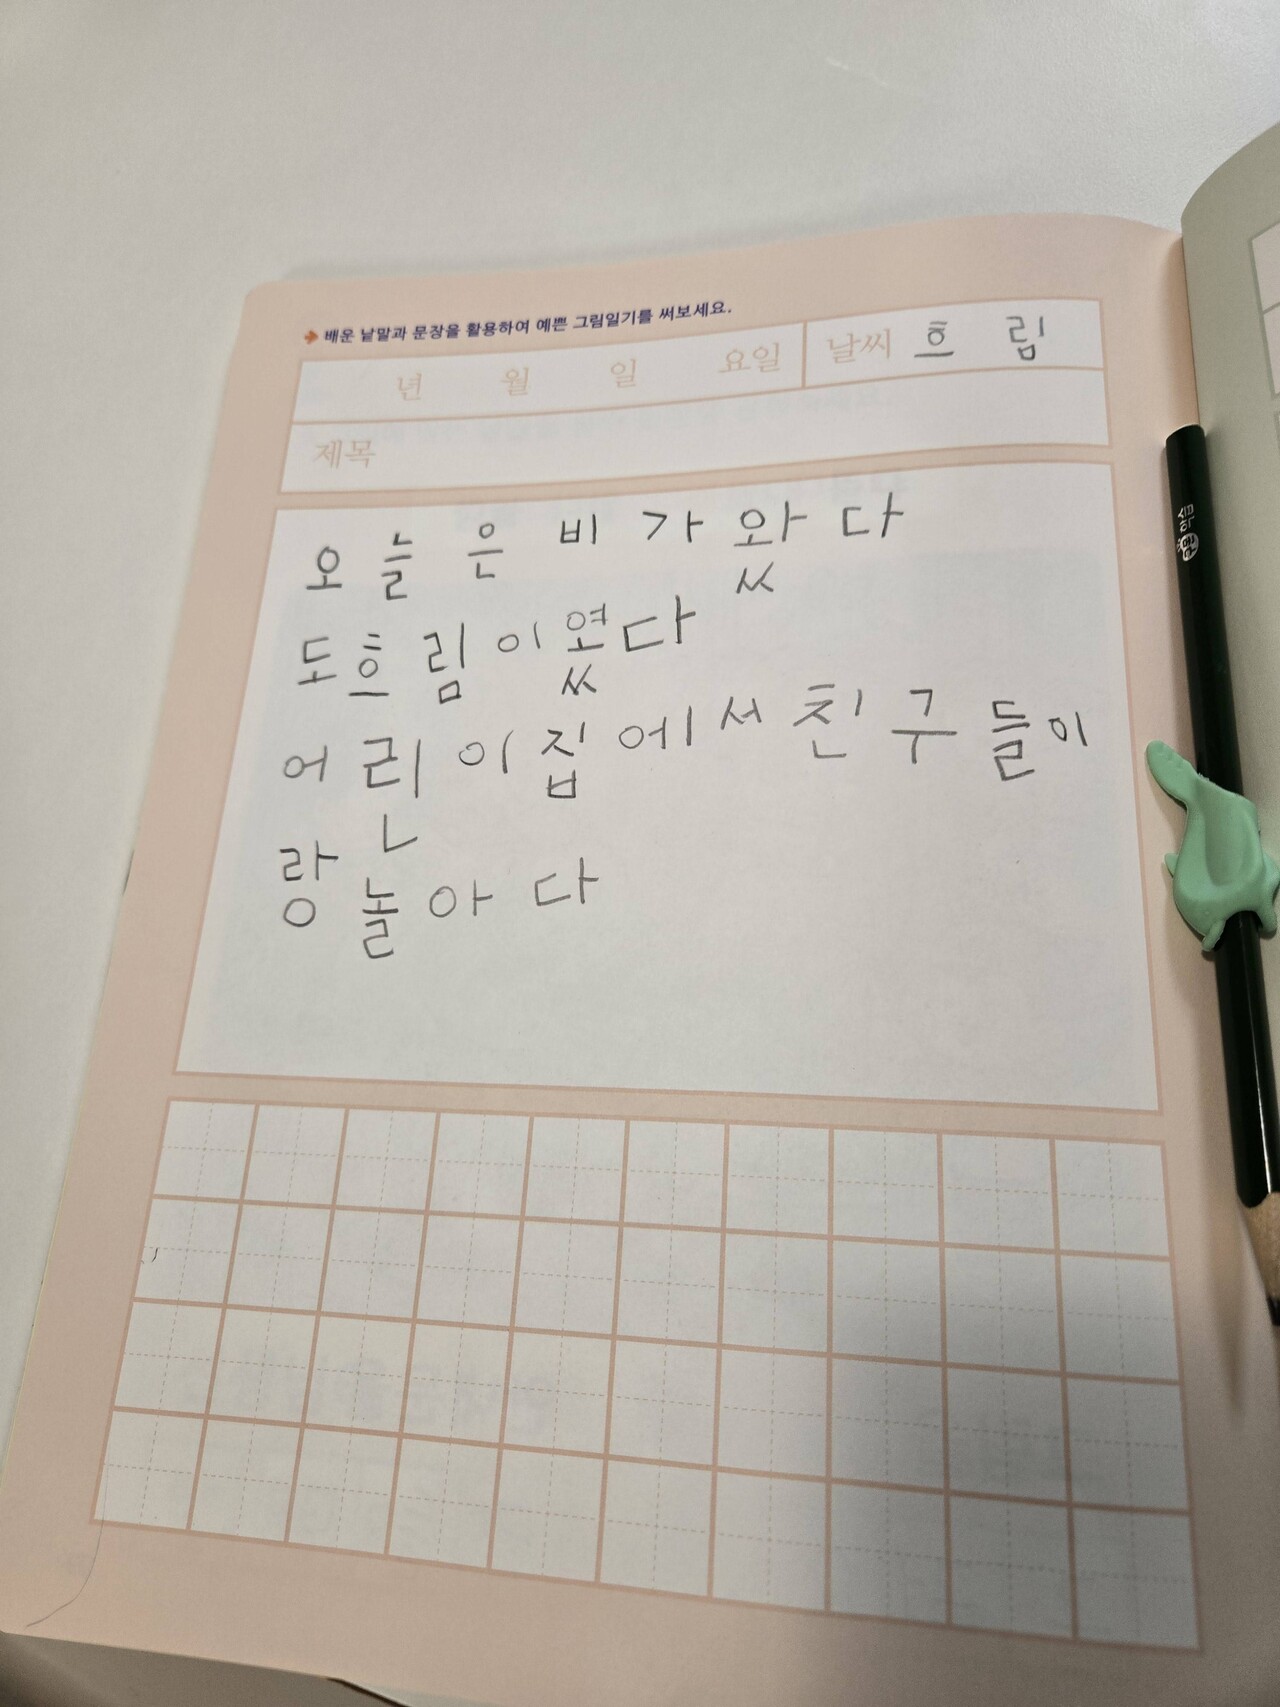 배운 낱말과 문장을 활용하여 예쁜 그림일기를 써보세요.
년 월 일 요일 날씨 흐 림
제목
오 늘 은 비 가 왔 다
도흐 림 이였다
어 린 이 집 에서 친 구 들이
랑 놀 아 다